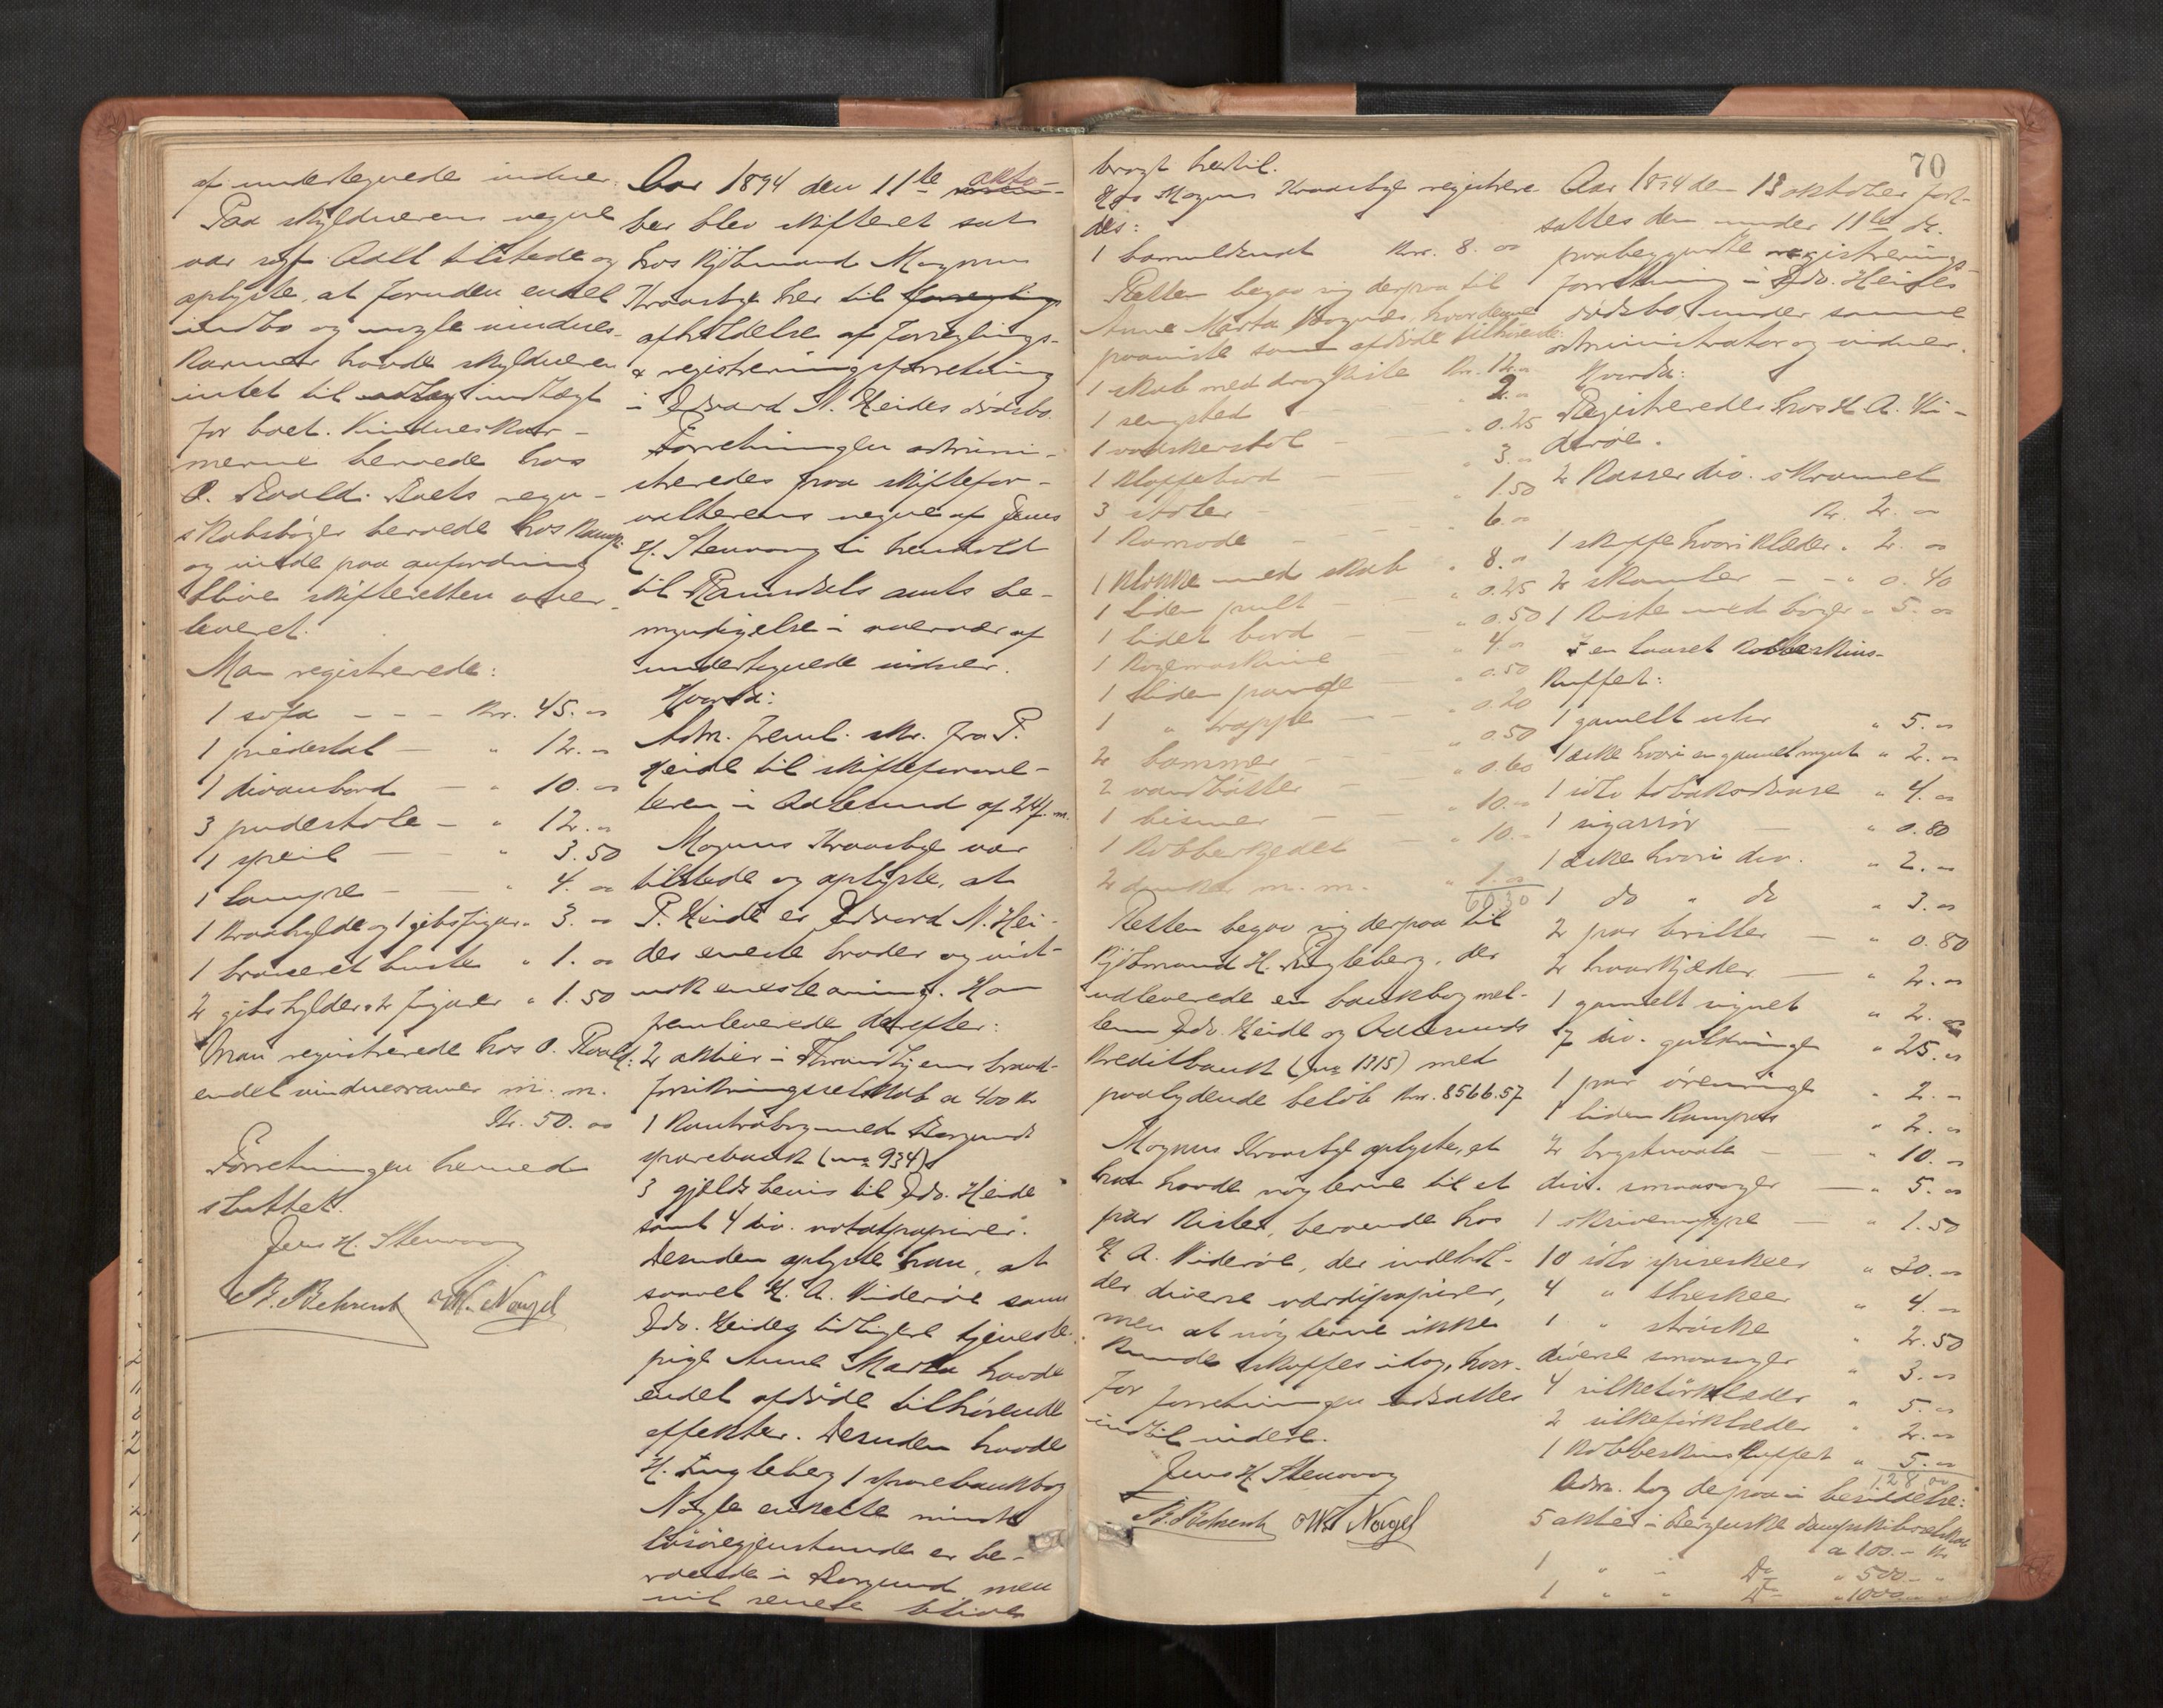 af undertegnede vidner.
Paa skyldnerens vegne
var sagf. Aall tilstede og
oplyste, at foruden endel
indbo og nogle vindues-
karmer havde skyldneren
intet til indtægt
for boet. Vindueskar-
merne beroede hos
O. Roald. Boets regn-
skabsbøger beroede hos
og vilde paa anfordring
blive skifteretten over-
leveret.
Man registrerede:
1 sofa - - - Kr. 45. "
1 piedestal - " 12. "
1 divanbord - " 10. "
3 pudestole - " 12. "
1 speil - - " 3.50
1 lampe - - " 4. "
1 kraahylde og 1 gibsfigur " 3. "
1 bronseret buste " 1. "
2 gibshylder & 2 figurer " 1.50
Man registrerede hos O. Roald:
endel vinduesramer m. m.
Kr. 50. "
Forretningen hermed
sluttet.
Jens H. Stenvaag
B. Behrendt O. W. Nagel
Aar 1894 den 11te okto-
ber blev skifteret sat
hos kjøbmand Magnus
Kraasbye her til forseglings
afholdelse af forseglings-
& registreringsforretning
i Edvard N. Heides dødsbo.
Forretningen admini-
streredes paa skiftefor-
valterens vegne af Jens
H. Stenvaag i henhold
til Romsdals amts be-
myndigelse i overvær af
undertegnede vidner.
Hvorda:
Adm. freml. skr. fra P.
Heide til skifteforval-
teren i Aalesund af 24 f. m.
Magnus Kraasbye var
tilstede og oplyste, at
P. Heide er Edvard N. Hei-
des eneste broder og vist-
nok eneste arving. Han
fremleverede derefter:
2 aktier i Throndhjems brand-
forsikringsselskab a 400 Kr
1 kontrabog med Borgunds
sparebank (no 934)
3 gjeldsbevis til Edv. Heide
samt 4 div. notatpapirer.
Desuden oplyste han, at
saavel H. A. Viderøe som
Edv. Heides tidligere tjeneste-
pige Anne Marta havde
endel afdøde tilhørende
effekter. Desuden havde
H. Engleberg 1 sparebankbog
Nogle enkelte mindre
løsøregjenstande er be-
roende i Borgund, men
vil senere blive
70
bragt hertil.
Hos Magnus Kraasbye registrere-
des:
1 bomuldsnot Kr. 8. "
Retten begav sig derpaa til
Anne Marta Vognæs, hvor denne
paaviste som afdøde tilhørende:
1 skab med dragkiste Kr. 12. "
1 sengsted - " 2. "
1 vaskerstol - " 0.25
1 klappebord - " 3. "
3 stoler - " 1.50
1 komode - - " 6. "
1 klokke med skab " 8. "
1 liden pult - " 0.25
1 lidet bord - " 0.50
1 kogemaskine - " 4. "
1 liden pande - " 0.50
1 " trappe - " 0.20
2 bommer - " 0.50
2 vandbøtter - " 0.60
1 bismer - - " 10. "
1 kobberkjedel - " 10. -
2 dunker m. m. " 1. "
69.30
Retten begav sig derpaa til
kjøbmand H. Engleberg, der
udleverede en bankbog mel-
lem Edv. Heide og Aalesunds
kreditbank (no 1315) med
paalydende beløb Kr. 8566.57
Magnus Kraasbye oplyste, at
han havde nøglerne til et
par kister, beroende hos
H. A. Viderøe, der indehol-
der diverse værdipapirer,
men at nøglerne ikke
kunde skaffes idag, hvor-
for forretningen udsattes
indtil videre.
Jens H. Stenvaag
B. Behrendt O. W. Nagel
Aar 1894 den 13 oktober fort-
sattes den under 11te ds.
paabegyndte registrerings-
forretning i Edv. Heides
dødsbo under samme
administrator og vidner.
Hvorda:
Registreredes hos H. A. Vi-
derøe.
2 kasser div. skrammel
Kr. 2. "
1 skuffe hvori klæder " 2. "
2 skamler - - " 0.40
1 kiste med bøger " 5. "
I en laaset kobbeskins-
kuffert:
1 gamelt uhr " 5. "
1 æske hvori en gamel mynt " 2. "
1 sølv tobaksdaase " 4. "
1 sigarrør - " 0.80
1 æske hvori div. " 2. "
1 do " do " 3. "
2 par briller - " 0.80
2 haarkjeder - " 2. "
1 gamelt signet " 2. "
7 div. guldringe " 25. "
1 par øreringe " 2. -
1 liden kompas " 2. "
2 brystnaale - - " 10. "
div. smaasager - " 5. "
1 skrivemappe - " 1.50
10 sølv spiseskeer " 30. "
4 " theskeer " 4. "
1 " strøske " 2.50
diverse smaasager " 3. "
4 silketørklæder " 5. "
2 silketørklæder " 2. "
1 kobbeskinskuffert " 5. "
128 00
Adm. tog derpaa i besiddelse:
5 aktier i Bergenske dampskibsselskab
a 100. - Kr
1 " " Do " 500 - "
1 " " Do " 1000 - "